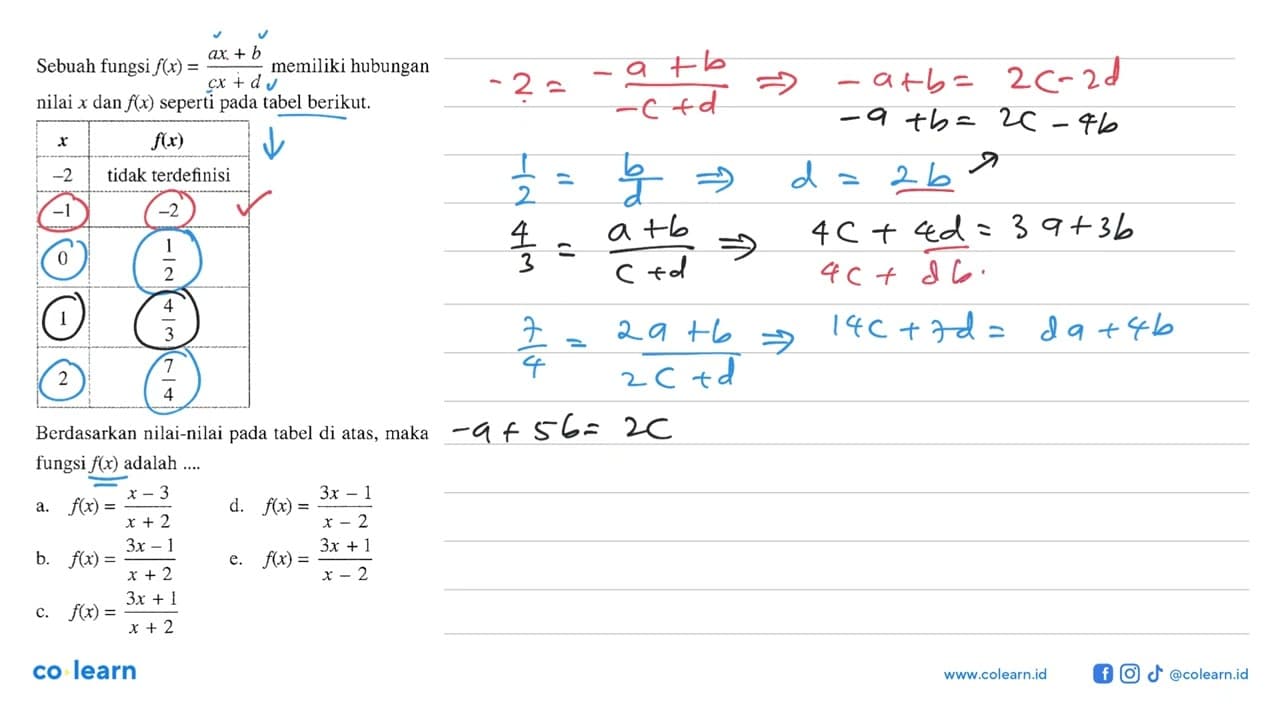 Sebuah fungsi f(x) = ax + b / cx + d memiliki hubungan
nilai x dan f(x) seperti pada tabel berikut.
x f(x)
–2 tidak terdefinisi
–1 –2
0 1/2
1 4/3
2 7/4
Berdasarkan nilai-nilai pada tabel di atas, maka
fungsi f(x) adalah ....
a. f(x) = x – 3 / x + 2 d. f(x) = 3x – 1 / x – 2
b. f(x) = 3x – 1 / x + 2 e. f(x) = 3x + 1 / x – 2
c. f(x) = 3x + 1 / x + 2
-2 = -a + b / -c + d ⇒ -a + b = 2c - 2d
-a + b = 2c - 4b
1/2 = b/d ⇒ d = 2b
4/3 = a + b / c + d ⇒ 4c + 4d = 3a + 3b
4c + 8b.
7/4 = 2a + b / 2c + d ⇒ 14c + 7d = 8a + 4b
-a + 5b = 2c
co learn
www.colearn.id @colearn.id